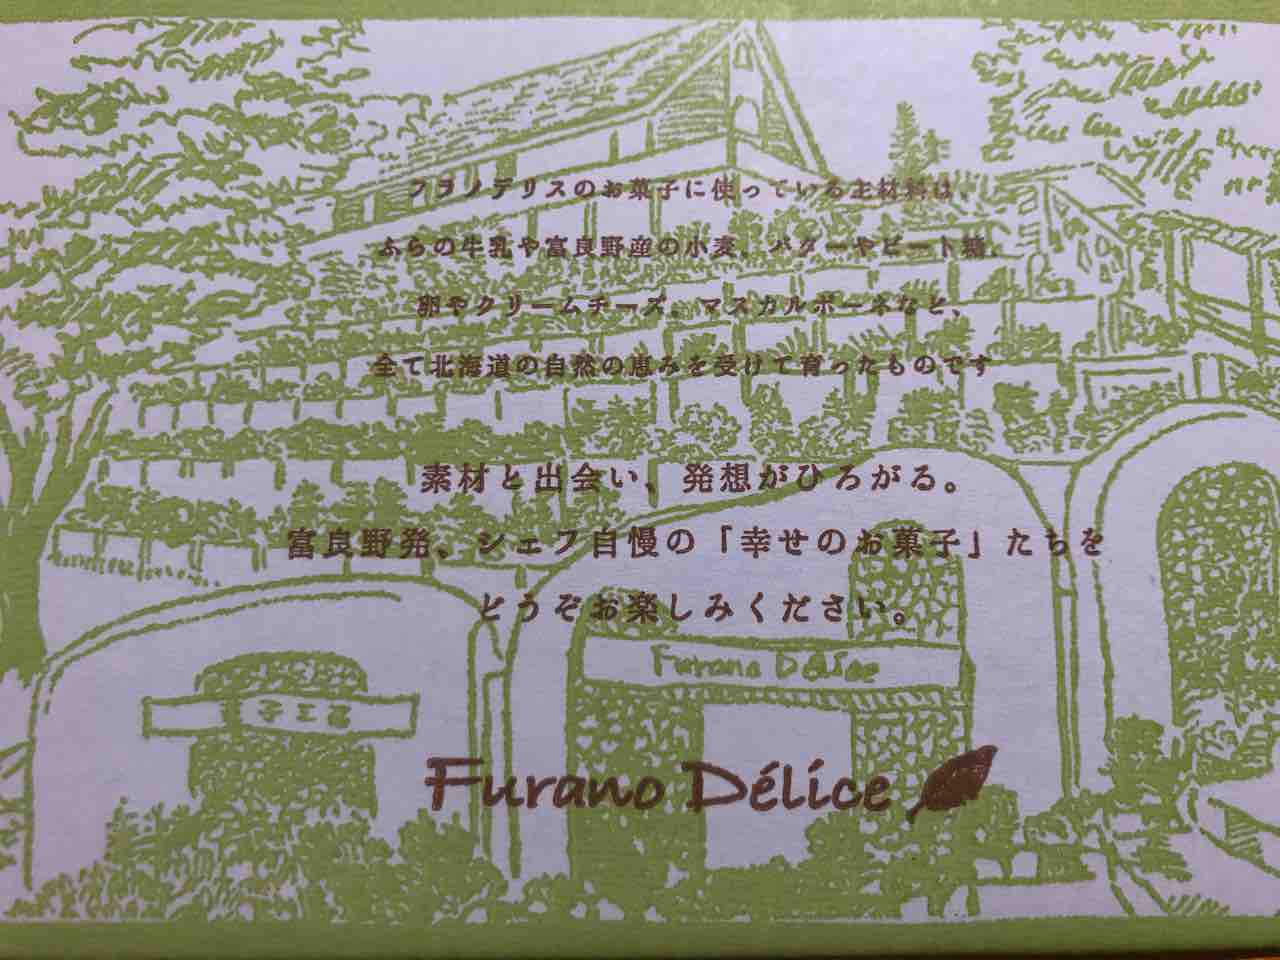 フラノデリスのお菓子に使っている主材料は、
ふらの牛乳や富良野産の小麦、バターやビート糖、
卵やクリームチーズ、マスカルポーネなど、
全て北海道の自然の恵みを受けて育ったものです
素材と出会い、発想がひろがる。
富良野発、シェフ自慢の「幸せのお菓子」たちを
どうぞお楽しみください。
Furano Délice
子工房
Furano Délice